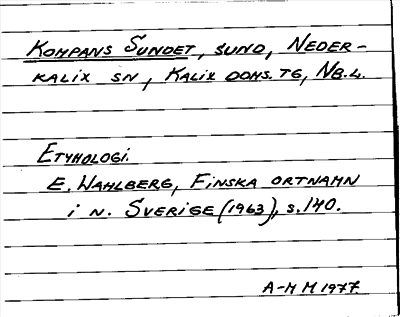 KOMPANS SUNDET, SUND, NEDER-
KALIX SN, KALIX DOMS. TG, NB.L.
ETYMOLOGI.
E. WAHLBERG, FINSKA ORTNAMN
i N. SVERIGE (1963), S. 140.
A-M M 1977.